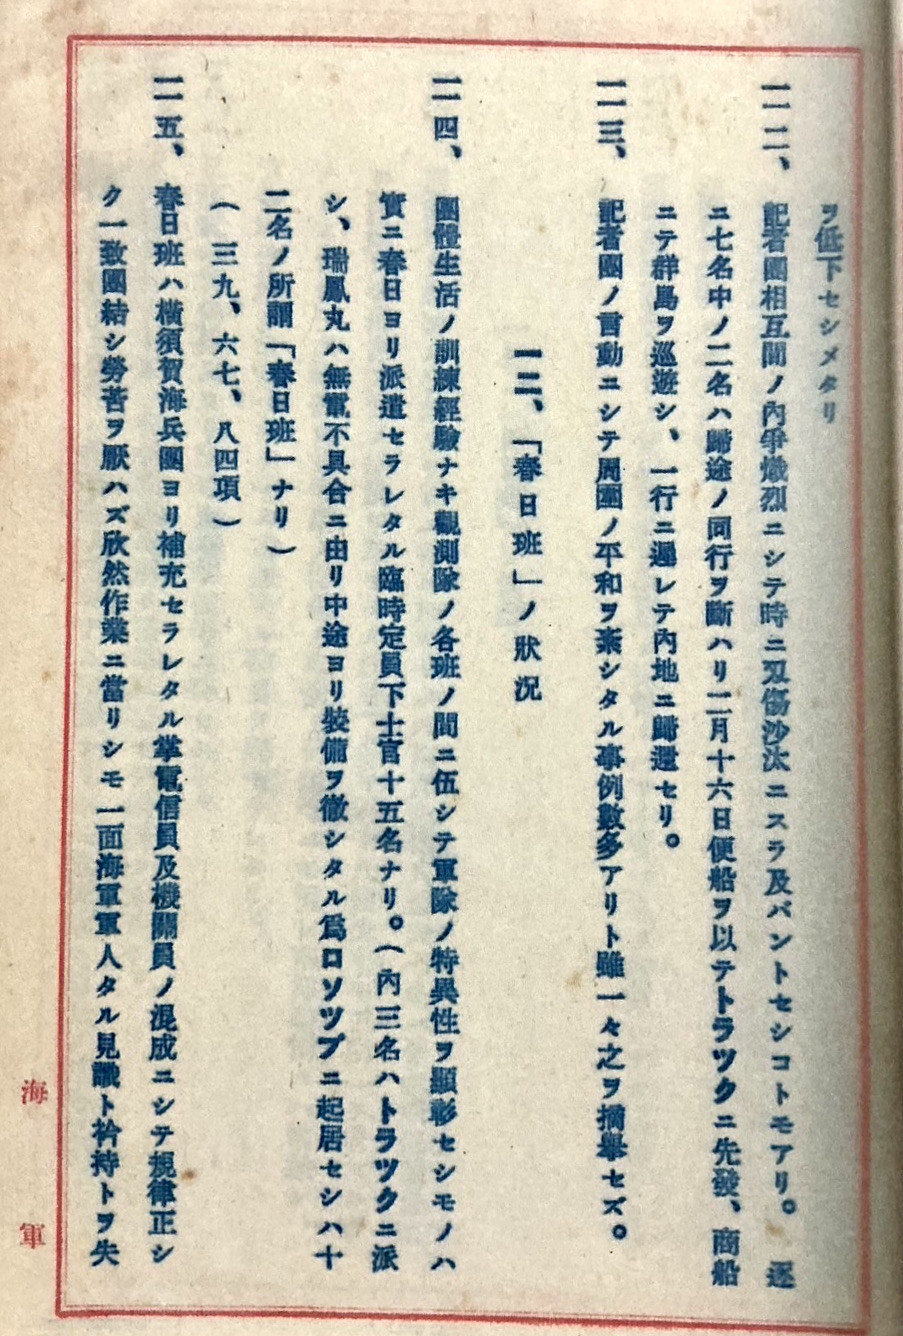 ヲ低下セシメタリ
一一二、記者團相互間ノ內爭熾烈ニシテ時ニ刄傷沙汰ニスラ及バントセシコトモアリ。逐
ニ七名中ノ二名ハ歸途ノ同行ヲ斷ハリ二月十六日便船ヲ以テトラツクニ先發、商船
ニテ群島ヲ巡遊シ、一行ニ遲レテ內地ニ歸還セリ。
一一三、記者團ノ言動ニシテ周圍ノ平和ヲ紊シタル事例數多アリト雖一々之ヲ摘擧セズ。
一二、「春日班」ノ狀況
一一四、團體生活ノ訓練經驗ナキ觀測隊ノ各班ノ間ニ伍シテ軍隊ノ特異性ヲ顯彰セシモノハ
實ニ春日ヨリ派遣セラレタル臨時定員下士官十五名ナリ。(內三名ハトラツクニ派
シ、瑞鳳丸ハ無電不具合ニ由リ中途ヨリ裝備ヲ徹シタル爲ロソツプニ起居セシハ十
二名ノ所謂「春日班」ナリ)
(三九、六七、八四項)
一一五、春日班ハ橫須賀海兵團ヨリ補充セラレタル掌電信員及機關員ノ混成ニシテ規律正シ
ク一致團結シ勞苦ヲ厭ハズ欣然作業ニ當リシモ一面海軍軍人タル見識ト衿持トヲ失
海軍